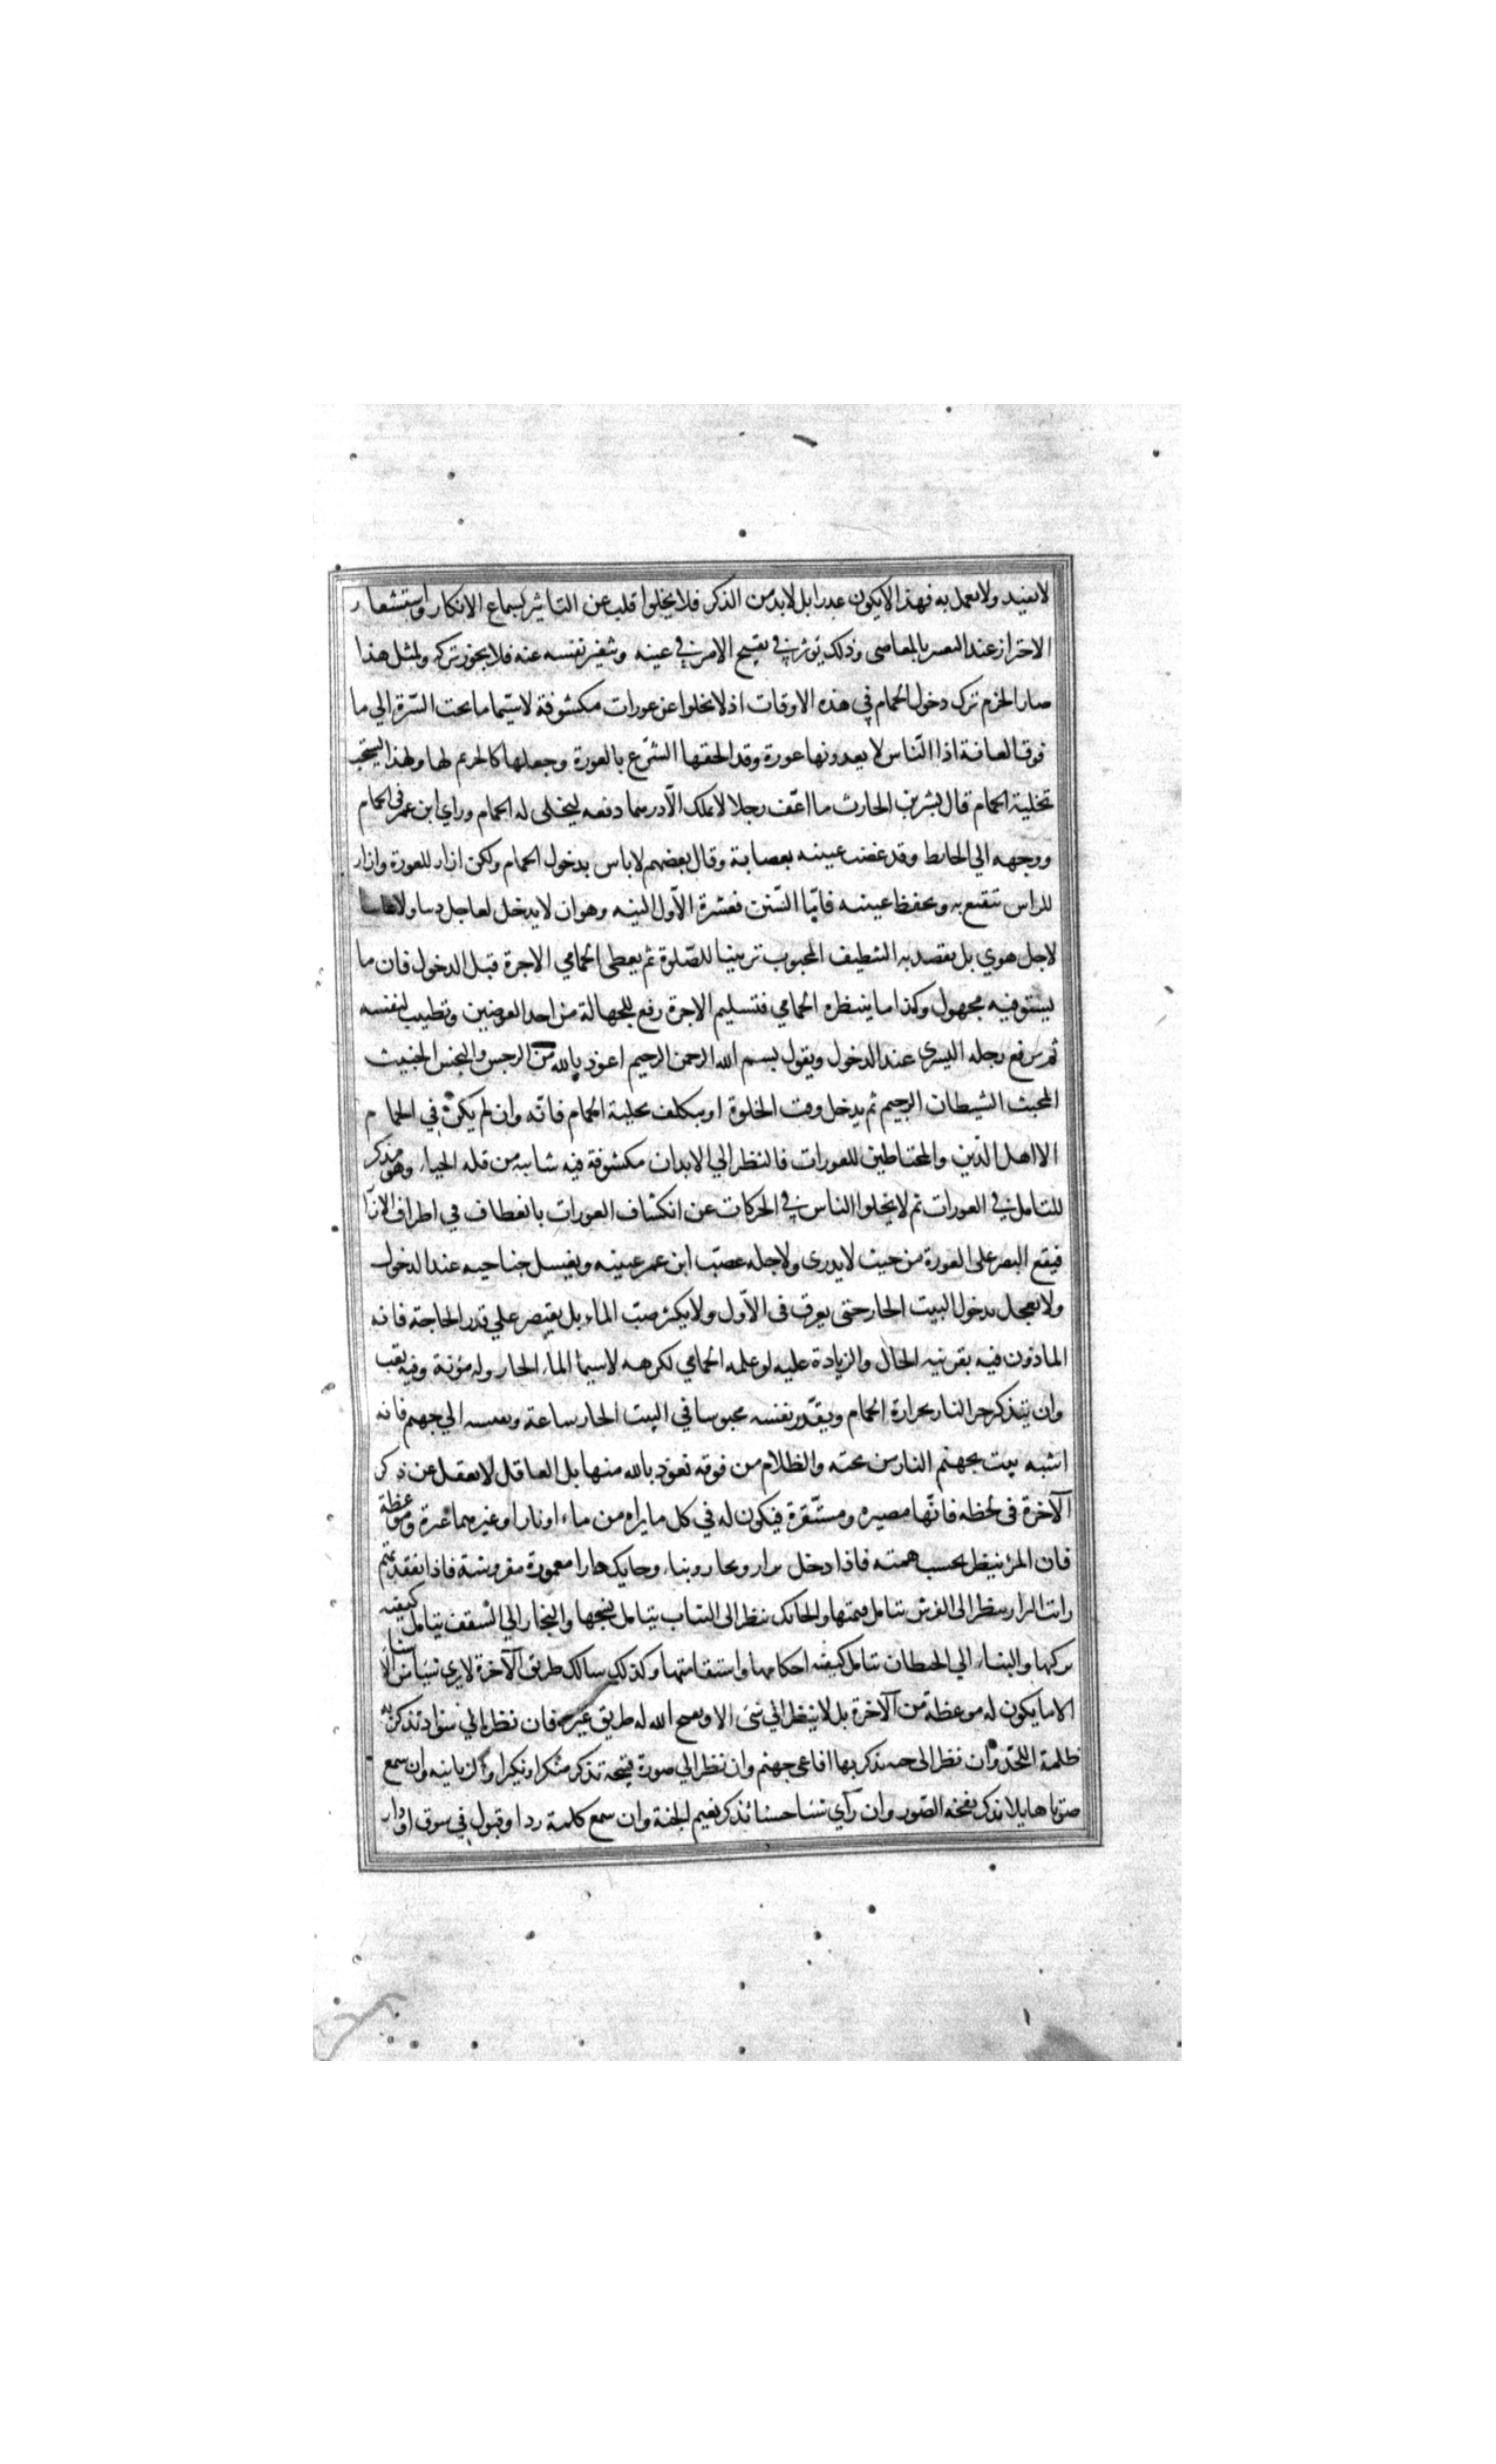 لا يفيد ولا يعمل به فهذا لا يكون عذرا بل لا بد من الذكر فلا يخلوا قلب عن التاثير بسماع الانكار واستشعار
الاحتراز عند التعيير بالمعاصي وذلك يوثر في تقبيح الامر في عينه وتنفير نفسه عنه فلا يجوز تركه ولمثل هذا
صار الحزم ترك دخول الحمام في هذه الاوقات اذ لا يخلوا عن عورات مكشوفة لا سيّما ما تحت السّرة الي ما
فوق العانة اذ الناس لا يعدونها عورة وقد الحقها الشّرع بالعورة وجعلها كالحريم لها ولهذا يستحب
تخلية الحمام قال بشر بن الحارث ما اعنّف رجلا لا يملك الّا درهما دفعه ليخلى له الحمام وراي ابن عمر في الحمام
ووجهه الي الحايط وقد عصب عينيه بعصابة وقال بعضهم لا باس بدخول الحمام ولكن ازار للعورة وازار
للراس تتقنع به ويحفظ عينيه فامّا السّنن فعشرة الاّول النيه وهو ان لا يدخل لعاجل دنيا ولا عابثا
لاجل هوي بل يقصد به التنظيف المحبوب تزيينا للصّلوة ثم يعطى الحمامي الاجرة قبل الدخول فان ما
يستوفيه مجهول وكذا ما ينتظره الحمامي فتسليم الاجرة رفع للجهالة من احد العوضين وتطييب لنفسه
ثم يرفع رجله اليسرى عند الدخول ويقول بسم الله الرحمن الرحيم اعوذ بالله من الرجس والنجس الخبيث
المخبث الشيطان الرجيم ثم يدخل وقت الخلوة او يتكلف تخلية الحمام فانّه وان لم يكن في الحمام
الا اهل الدّين والمحتاطين للعورات فالنظر الي الابدان مكشوفة فيه شايبه من قله الحياء وهو مذكر
للتامل في العورات ثم لا يخلوا الناس في الحركات عن انكشاف العورات بانعطاف في اطراف الازار
فيقع البصر على العورة من حيث لا يدرى ولاجله عصّب ابن عمر عينيه ويغسل جناحيه عند الدخول
ولا يعجل بدخول البيت الحار حتى يعرق في الاّول ولا يكثر صبّ الماء بل يقتصر علي قدر الحاجة فانه
الماذون فيه بقرينه الحال والزيادة عليه لو علمه الحمامي لكرهه لا سيما الماء الحار وله مؤنة وفيه تعب
وان يتذكر حر النار بحرارة الحمام ويقدّر نفسه محبوسا في البيت الحار ساعة ويقيسه الي جهنم فانه
اشبه بيت بجهنم النار من تحته والظلام من فوقه نعوذ بالله منها بل العاقل لا يغفل عن ذكر
الآخرة في لحظه فانّها مصيره ومستقرة فيكون له في كل ما يراه من ماء او نار او غيرهما عبرة وموعظة
فان المرء ينظر بحسب همته فاذا دخل بزار ونجار وبناء وحايك دارا معمورة مفروشة فاذا تفقدتهم
رايت البزار ينظر الى الفرش يتامل قيمتها والحائك ينظر الى الثياب يتامل نسجها والنجار الي السقف يتامل كيفيه
تركيبها والبناء الي الحيطان يتامل كيفيه احكامها واستقامتها وكذلك سالك طريق الآخرة لا يري شيئا من الاشيا
الا ما يكون له موعظة من الآخرة بل لا ينظر الي شئ الا ويفتح الله له طريق عبرة فان نظر الي سواد تذكر به
ظلمة اللّحد وان نظر الى حيه تذكر بها افاعي جهنم وان نظر الي صورة قبيحه تذكر منكرا ونكيرا والزبانيه وان سمع
صوتا هايلا تذكر نفخه الصّور وان رآي شيئا حسنا تذكر نعيم الجنة وان سمع كلمة رد او قبول في سوق او دار